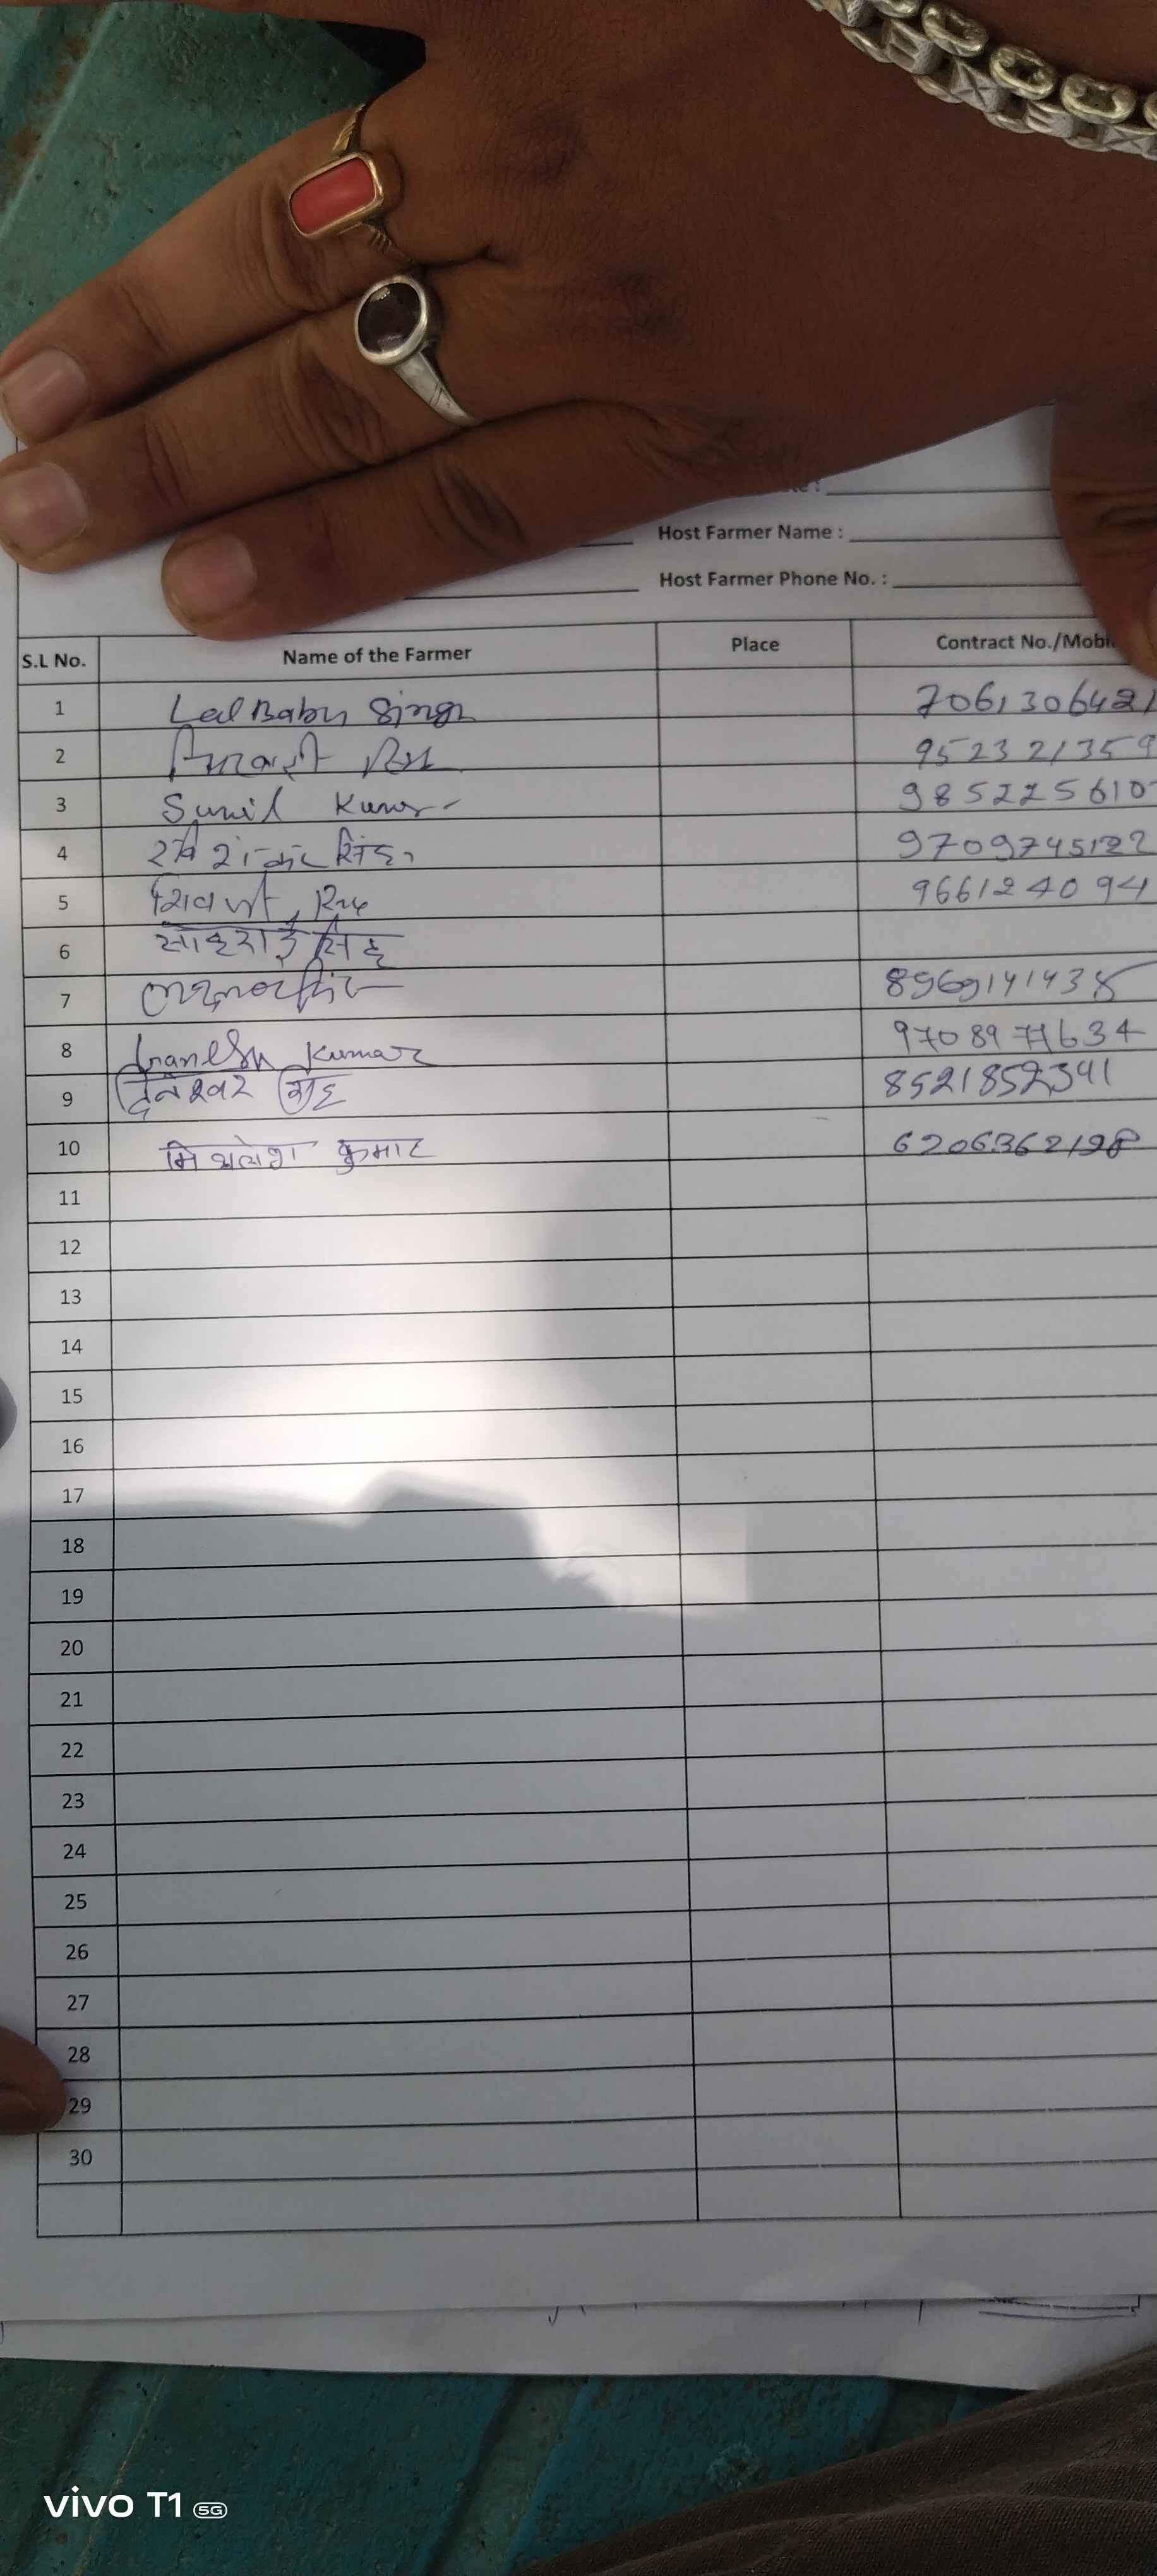 Host Farmer Name :
Host Farmer Phone No. :
S.L No. Name of the Farmer Place Contract No./Mobi
1 Lal Babu Singh 7061306421
2 952321359
3 Sunil Kumar 9852256107
4 रवि शंकर सिंह 9709745122
5 शिवजी 966124094
6 सोहराई सिंह
7 8969141438
8 Kumar 9708971634
9 दिनेश्वर साह 8521852341
10 मिथलेश कुमार 6206362198
11
12
13
14
15
16
17
18
19
20
21
22
23
24
25
26
27
28
29
30
vivo T1 5G